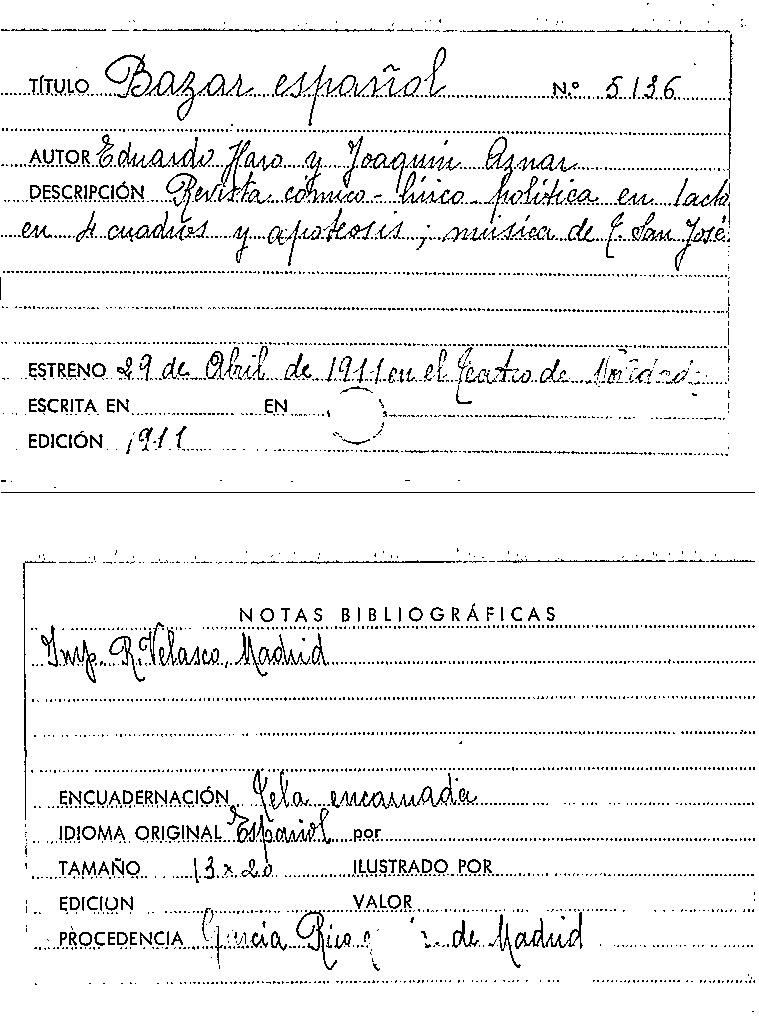 TÍTULO Bazar español N.º 5136
AUTOR Eduardo Haro y Joaquín Aznar
DESCRIPCIÓN Revista cómico-lírico-política en 1 acto
en 4 cuadros y apoteosis; música de T. San José
ESTRENO 29 de Abril de 1911 en el Teatro de
ESCRITA EN EN
EDICIÓN 1911
NOTAS BIBLIOGRÁFICAS
Imp. R. Velasco, Madrid
ENCUADERNACIÓN Tela encarnada
IDIOMA ORIGINAL Español por
TAMAÑO 13 x 20 ILUSTRADO POR
EDICION VALOR
PROCEDENCIA García Rico de Madrid